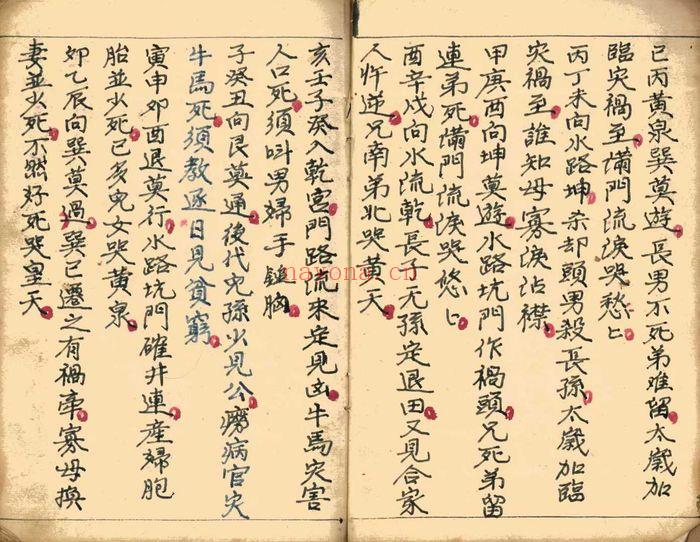 已丙黄泉巽莫遊長男不死弟难留太歲加
臨灾禍至满門流淚哭愁〻
丙丁未向水路坤杀却頭男殺長孫太歲加臨
灾禍至誰知母寡淚沾襟
甲庚酉向坤莫遊水路坑門作禍頭兄死弟留
連弟死满門流淚哭悠〻
酉辛戌向水流乾長子无孫定退田又見合家
人忤逆兄南弟北哭黄天
亥壬子癸入乾宫門路流来定見凶牛馬灾害
人口死須叫男婦手鎚胸
子癸丑向艮莫通後代兒孫少見公癆病官灾
牛馬死須教逐日見貧窮
寅申卯酉退莫行水路坑門碓井連產婦胞
胎並少死已多兒女哭黄泉
卯乙辰向巽莫過巽巳遷之有禍牽寡母換
妻並少死不然好死哭皇天